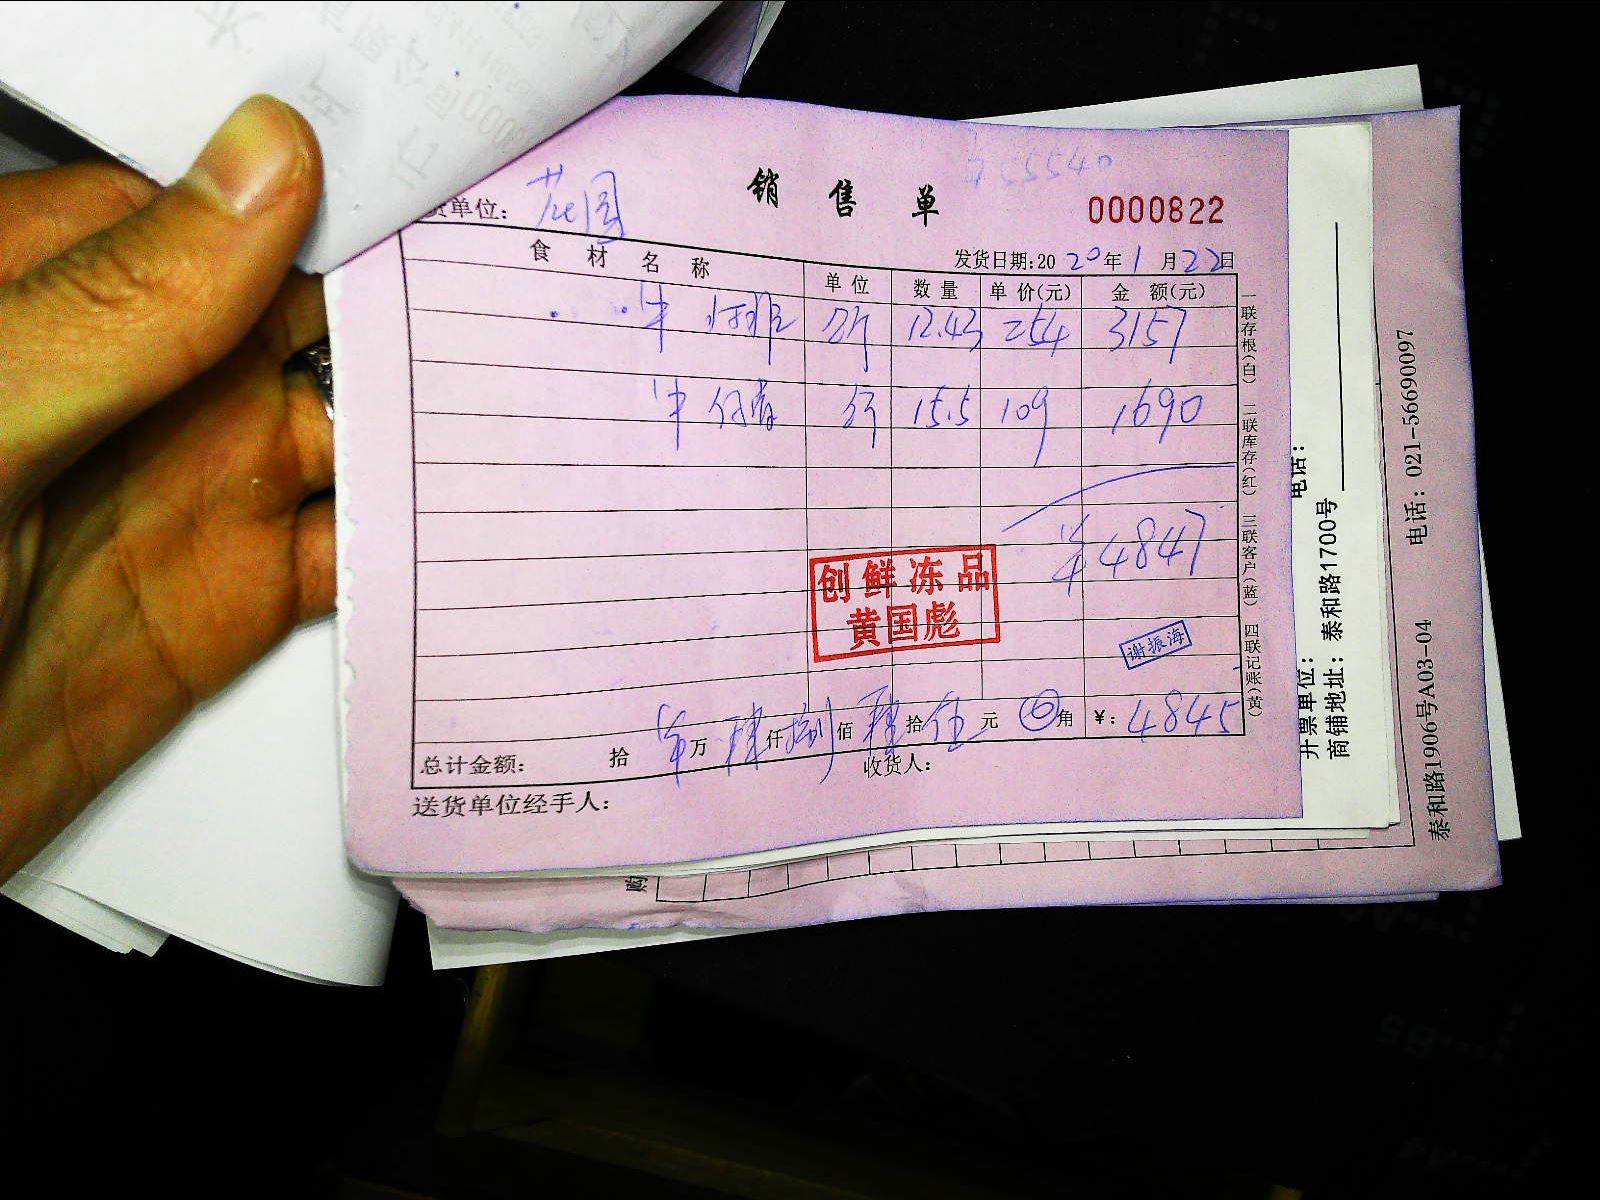 销售单
0000822
货单位：花园
发货日期：2020年1月22日
食材名称 单位 数量 单价(元) 金额(元)
牛 排 斤 12.43 254 3157
牛 斤 15.5 109 1690
¥4847
创鲜冻品
黄国彪
谢振海
总计金额： 拾 万 肆仟捌佰肆拾伍元 角 ¥：4845
送货单位经手人： 收货人：
一联存根(白) 二联库存(红) 三联客户(蓝) 四联记账(黄)
电话：
开票单位：
商铺地址：泰和路1700号
泰和路1906号A03-04 电话：021-56690097
购